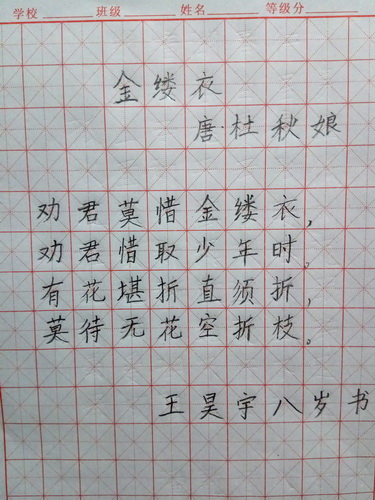 学校 班级 姓名 等级分
金缕衣
唐·杜秋娘
劝君莫惜金缕衣,
劝君惜取少年时。
有花堪折直须折,
莫待无花空折枝。
王昊宇八岁书